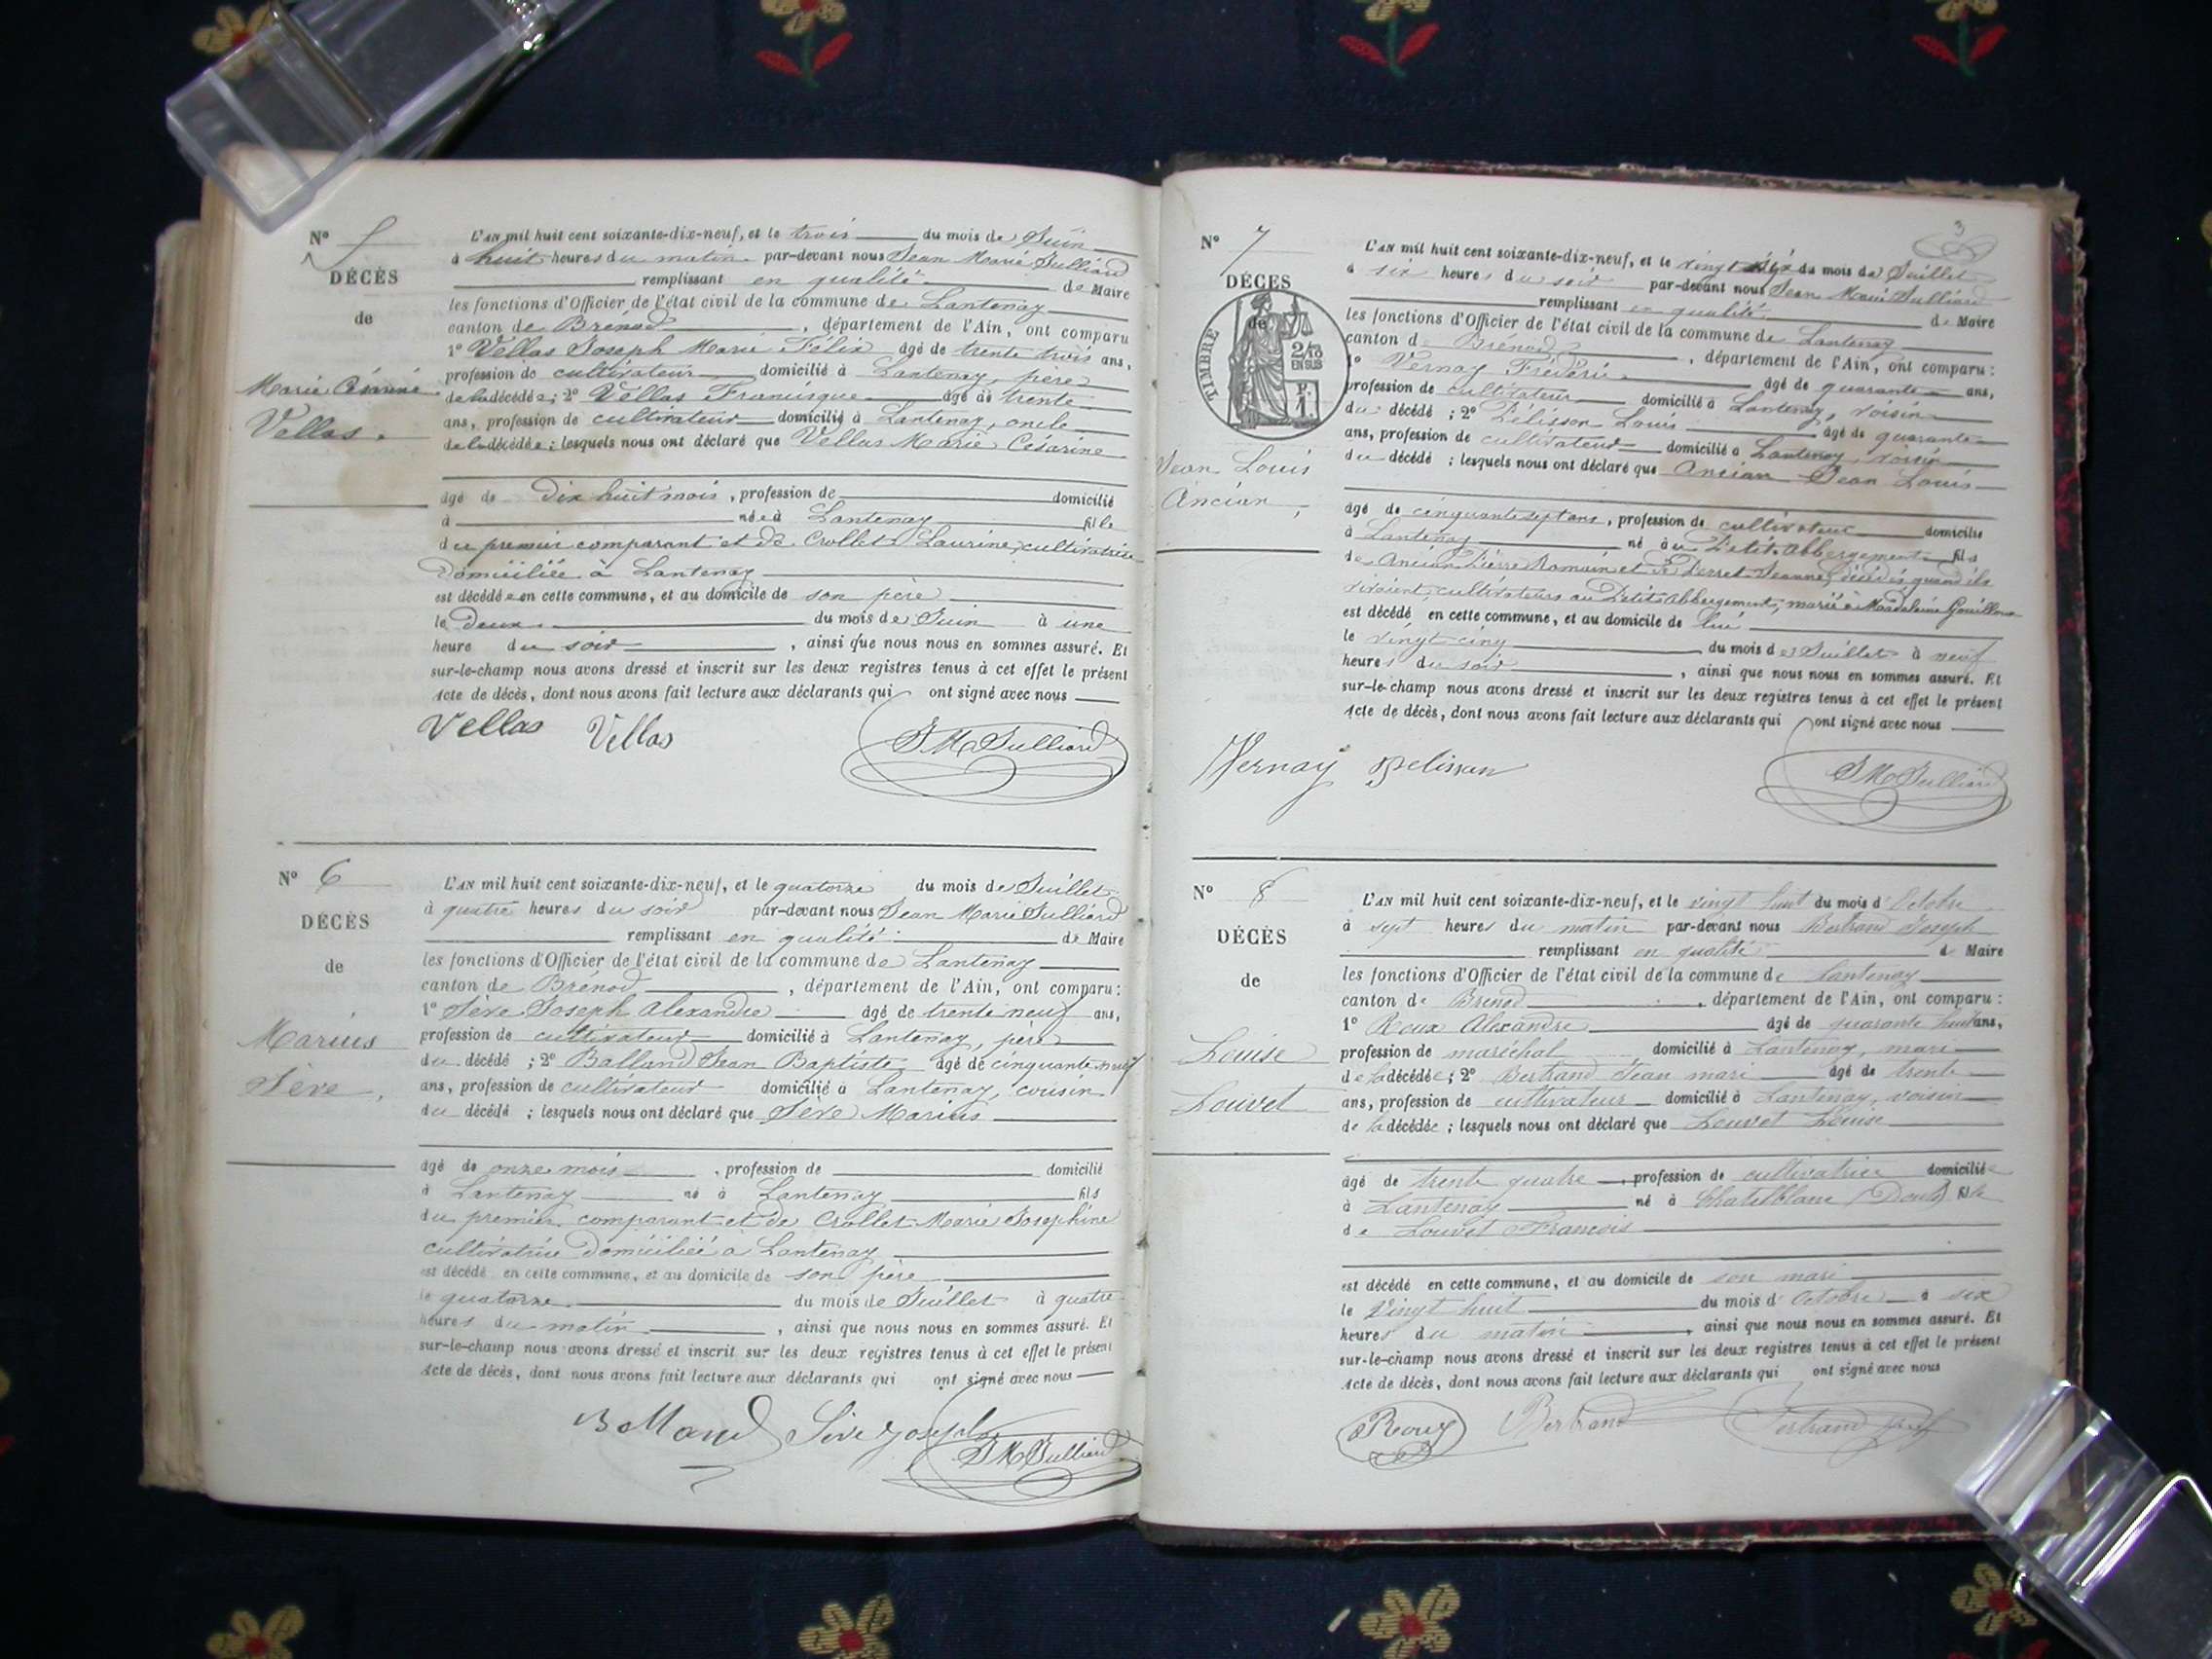 Nº 5
DÉCÈS
de
Marie Césarine
Vellas.
L'AN mil huit cent soixante-dix-neuf, et le trois du mois de Juin
à huit heures du matin par-devant nous Jean Marie Julliard
remplissant en qualité de Maire
les fonctions d'Officier de l'état civil de la commune de Lantenay
canton de Brénod, département de l'Ain, ont comparu
1º Vellas Joseph Marie Félix âgé de trente trois ans,
profession de cultivateur domicilié à Lantenay, père
de la décédée; 2º Vellas Francisque âgé de trente
ans, profession de cultivateur domicilié à Lantenay, oncle
de la décédée; lesquels nous ont déclaré que Vellas Marie Césarine
âgé de dix huit mois, profession de domicilié
à née à Lantenay fille
du premier comparant et de Crollet Laurine, cultivatrice
domiciliée à Lantenay
est décédée en cette commune, et au domicile de son père
le deux du mois de Juin à une
heure du soir, ainsi que nous nous en sommes assuré. Et
sur-le-champ nous avons dressé et inscrit sur les deux registres tenus à cet effet le présent
Acte de décès, dont nous avons fait lecture aux déclarants qui ont signé avec nous
Vellas Vellas J M Julliard
Nº 6
DÉCÈS
de
Marius
Sève,
L'AN mil huit cent soixante-dix-neuf, et le quatorze du mois de Juillet
à quatre heures du soir par-devant nous Jean Marie Julliard
remplissant en qualité de Maire
les fonctions d'Officier de l'état civil de la commune de Lantenay
canton de Brénod, département de l'Ain, ont comparu:
1º Sève Joseph Alexandre âgé de trente neuf ans,
profession de cultivateur domicilié à Lantenay, père
du décédé; 2º Balland Jean Baptiste âgé de cinquante neuf
ans, profession de cultivateur domicilié à Lantenay, cousin
du décédé; lesquels nous ont déclaré que Sève Marius
âgé de onze mois, profession de domicilié
à Lantenay né à Lantenay fils
du premier comparant et de Crollet Marie Josephine
cultivatrice domiciliée à Lantenay
est décédé en cette commune, et au domicile de son père
le quatorze du mois de Juillet à quatre
heures du matin, ainsi que nous nous en sommes assuré. Et
sur-le-champ nous avons dressé et inscrit sur les deux registres tenus à cet effet le présent
Acte de décès, dont nous avons fait lecture aux déclarants qui ont signé avec nous
Balland Sève Joseph J M Julliard
3
Nº 7
DÉCES
de
TIMBRE
2/10
EN SUS
P.
1
Jean Louis
Ancian,
L'AN mil huit cent soixante-dix-neuf, et le vingt six du mois de Juillet
à six heures du soir par-devant nous Jean Marie Julliard
remplissant en qualité de Maire
les fonctions d'Officier de l'état civil de la commune de Lantenay
canton de Brénod, département de l'Ain, ont comparu:
1º Vernay Frédéric âgé de quarante ans,
profession de cultivateur domicilié à Lantenay, voisin
du décédé; 2º Pélisson Louis âgé de quarante
ans, profession de cultivateur domicilié à Lantenay, voisin
du décédé; lesquels nous ont déclaré que Ancian Jean Louis
âgé de cinquante sept ans, profession de cultivateur domicilié
à Lantenay né au Petit Abbergement fils
de Ancian Pierre Romain et de Perret Jeanne, décédés quand ils
vivaient, cultivateurs au Petit Abbergement, marié à Magdeleine
est décédé en cette commune, et au domicile de lui
le vingt cinq du mois de Juillet à neuf
heures du soir, ainsi que nous nous en sommes assuré. Et
sur-le-champ nous avons dressé et inscrit sur les deux registres tenus à cet effet le présent
Acte de décès, dont nous avons fait lecture aux déclarants qui ont signé avec nous
Vernay pelissan J M Julliard
Nº 8
DÉCÈS
de
Louise
Louvet
L'AN mil huit cent soixante-dix-neuf, et le vingt huit du mois d'Octobre
à sept heures du matin par-devant nous Bertrand Joseph
remplissant en qualité de Maire
les fonctions d'Officier de l'état civil de la commune de Lantenay
canton de Brenod, département de l'Ain, ont comparu:
1º Roux Alexandre âgé de quarante huit ans,
profession de maréchal domicilié à Lantenay, mari
de la décédée; 2º Bertrand Jean mari âgé de trente
ans, profession de cultivateur domicilié à Lantenay, voisin
de la décédée; lesquels nous ont déclaré que Louvet Louise
âgé de trente quatre, profession de cultivatrice domiciliée
à Lantenay né à Chatelblanc (Doubs) fille
de Louvet Francois
est décédé en cette commune, et au domicile de son mari
le vingt huit du mois d'Octobre à six
heures du matin, ainsi que nous nous en sommes assuré. Et
sur-le-champ nous avons dressé et inscrit sur les deux registres tenus à cet effet le présent
Acte de décès, dont nous avons fait lecture aux déclarants qui ont signé avec nous
Roux Bertrand Bertrand